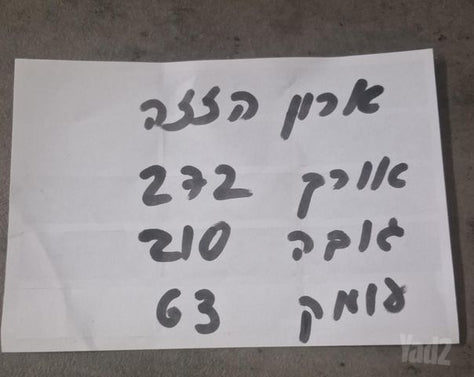 ארון הזזה
אורך 272
גובה 210
עומק 63
Yad2